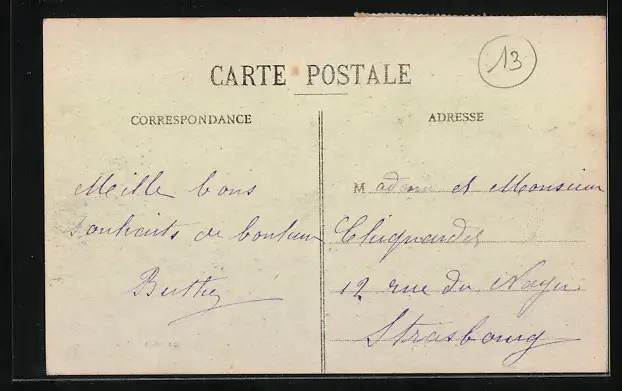 13
CARTE POSTALE
CORRESPONDANCE
ADRESSE
Mille bons
souhaits de bonheur
Berthe
Madame et Monsieur
12 rue du
Strasbourg